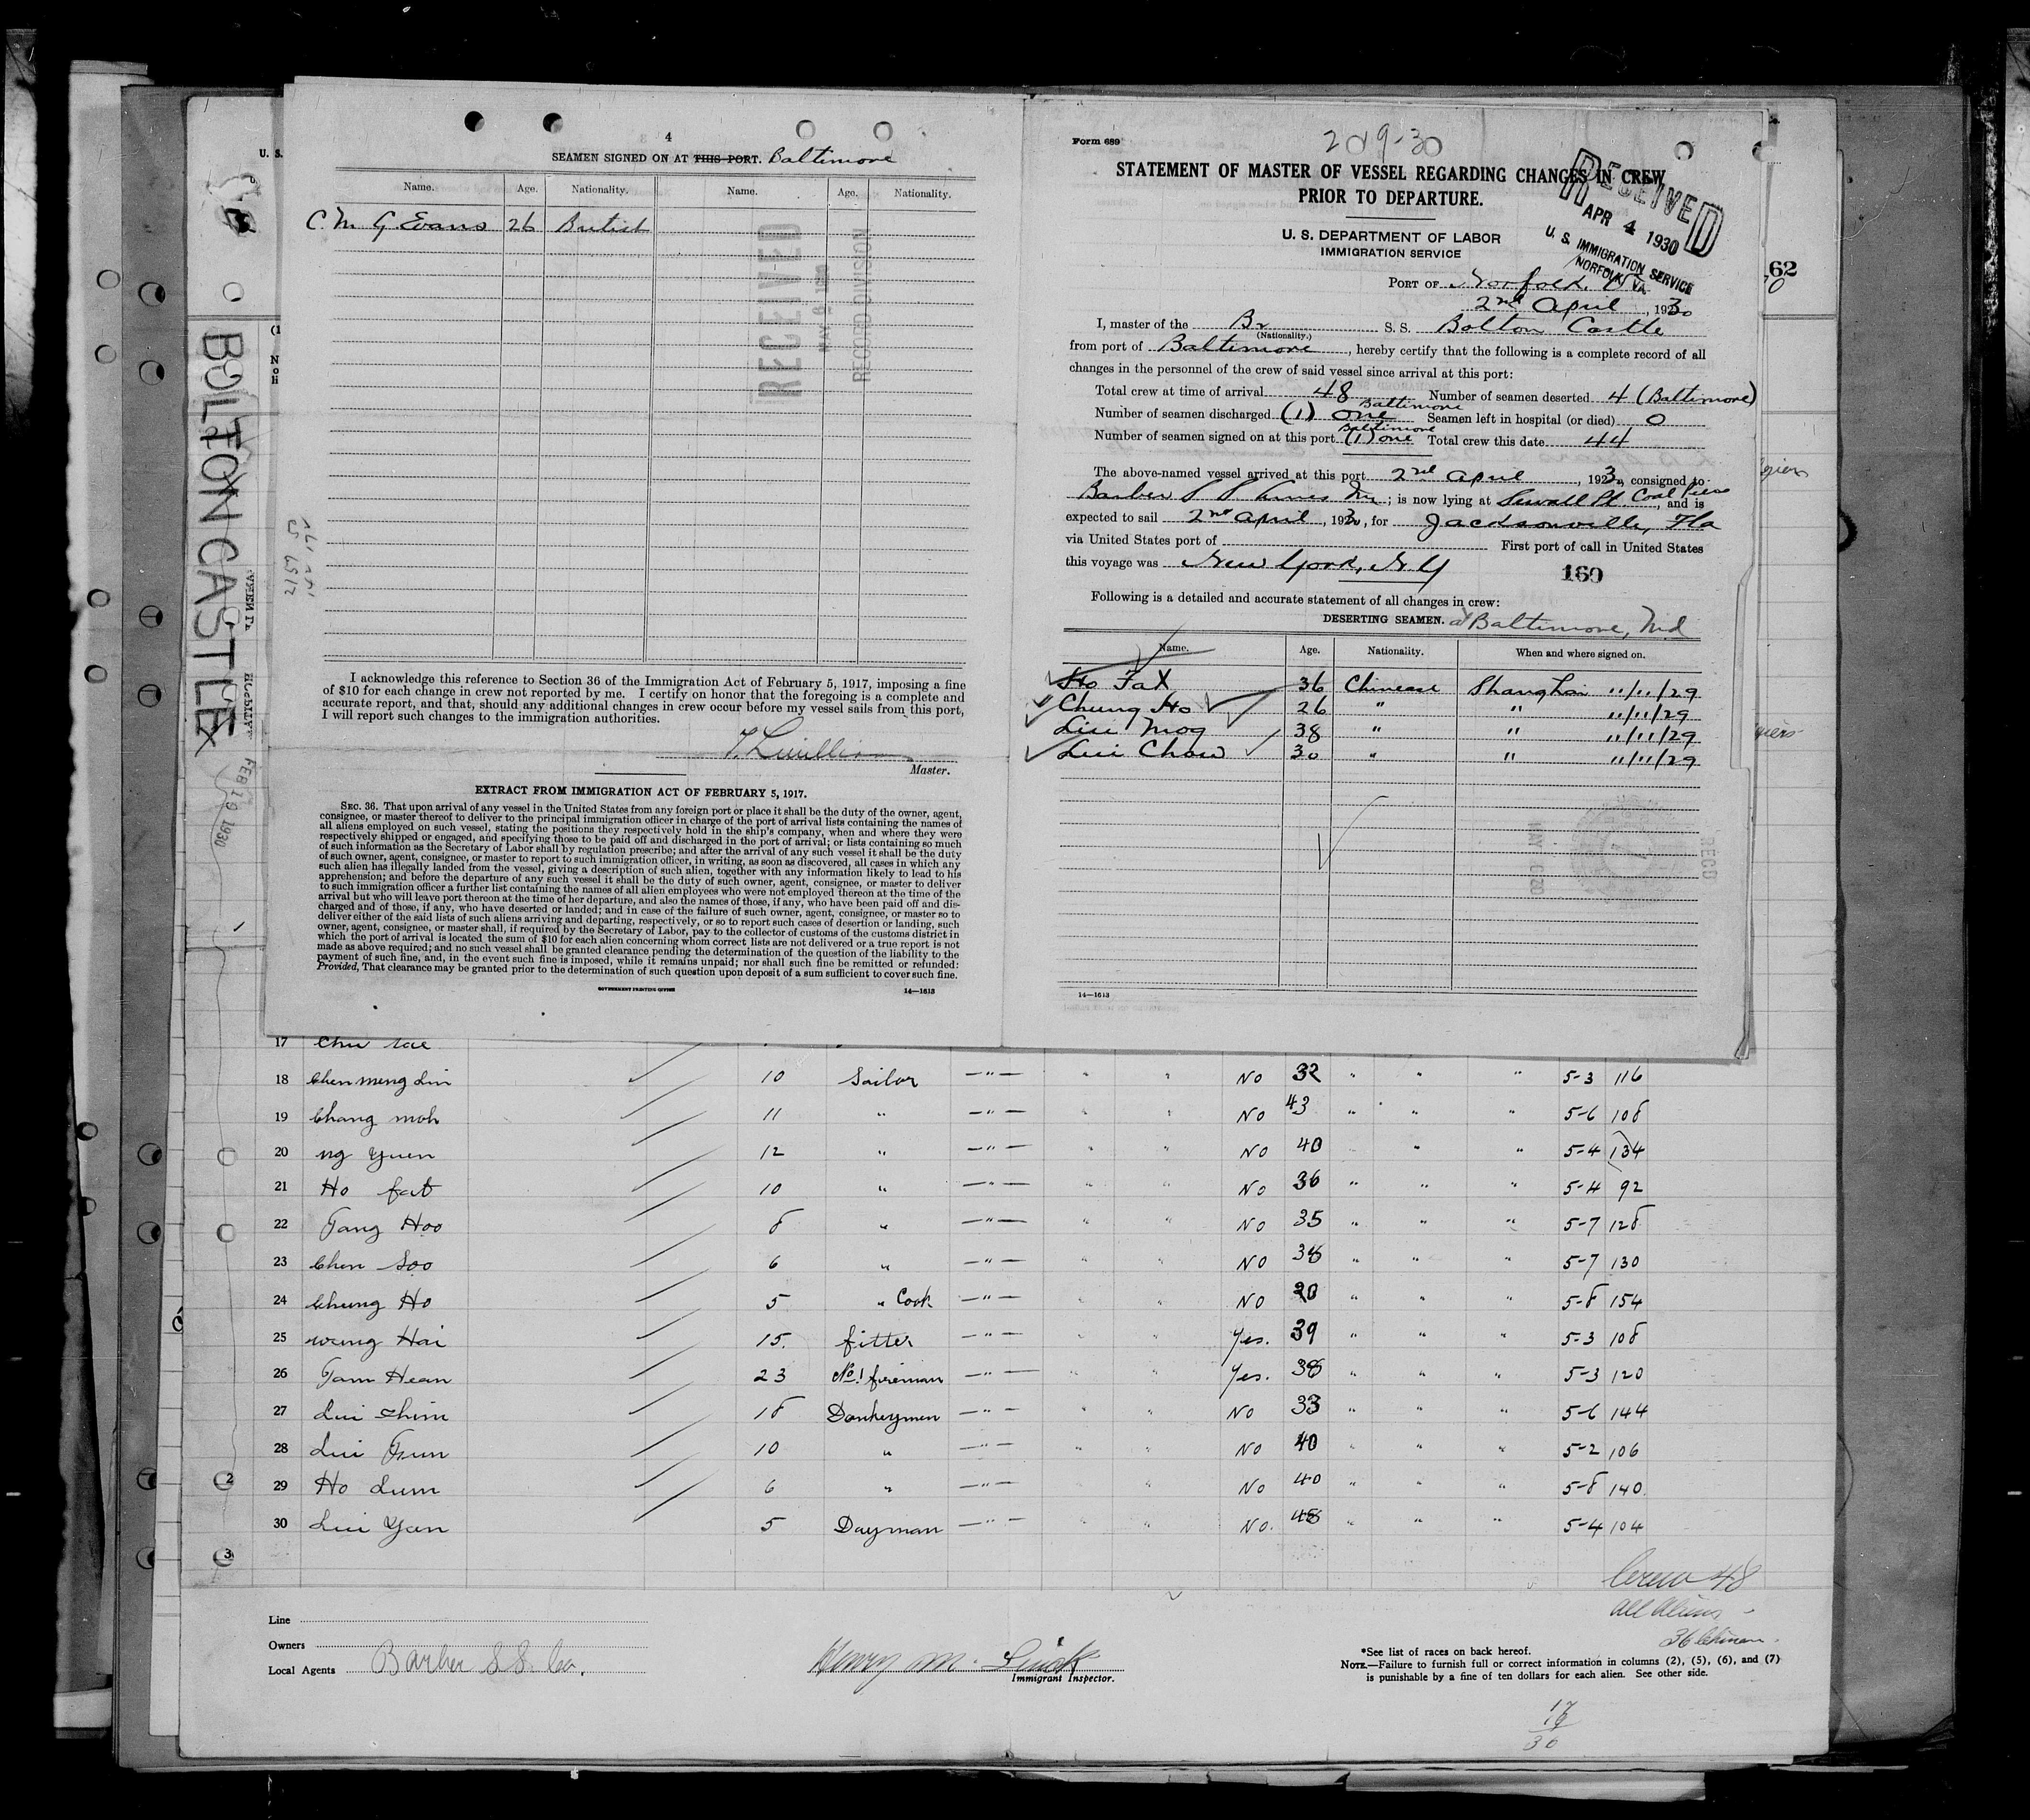 4
SEAMEN SIGNED ON AT THIS PORT. Baltimore
Name. Age. Nationality. Name. Age. Nationality.
C. M. G Evans 26 British
RECEIVED
RECORD DIVISION
I acknowledge this reference to Section 36 of the Immigration Act of February 5, 1917, imposing a fine
of $10 for each change in crew not reported by me. I certify on honor that the foregoing is a complete and
accurate report, and that, should any additional changes in crew occur before my vessel sails from this port,
I will report such changes to the immigration authorities.
Master.
EXTRACT FROM IMMIGRATION ACT OF FEBRUARY 5, 1917.
SEC. 36. That upon arrival of any vessel in the United States from any foreign port or place it shall be the duty of the owner, agent,
consignee, or master thereof to deliver to the principal immigration officer in charge of the port of arrival lists containing the names of
all aliens employed on such vessel, stating the positions they respectively hold in the ship's company, when and where they were
respectively shipped or engaged, and specifying those to be paid off and discharged in the port of arrival; or lists containing so much
of such information as the Secretary of Labor shall by regulation prescribe; and after the arrival of any such vessel it shall be the duty
of such owner, agent, consignee, or master to report to such immigration officer, in writing, as soon as discovered, all cases in which any
such alien has illegally landed from the vessel, giving a description of such alien, together with any information likely to lead to his
apprehension; and before the departure of any such vessel it shall be the duty of such owner, agent, consignee, or master to deliver
to such immigration officer a further list containing the names of all alien employees who were not employed thereon at the time of the
arrival but who will leave port thereon at the time of her departure, and also the names of those, if any, who have been paid off and dis-
charged and of those, if any, who have deserted or landed; and in case of the failure of such owner, agent, consignee, or master so to
deliver either of the said lists of such aliens arriving and departing, respectively, or so to report such cases of desertion or landing, such
owner, agent, consignee, or master shall, if required by the Secretary of Labor, pay to the collector of customs of the customs district in
which the port of arrival is located the sum of $10 for each alien concerning whom correct lists are not delivered or a true report is not
made as above required; and no such vessel shall be granted clearance pending the determination of the question of the liability to the
payment of such fine, and, in the event such fine is imposed, while it remains unpaid; nor shall such fine be remitted or refunded:
Provided, That clearance may be granted prior to the determination of such question upon deposit of a sum sufficient to cover such fine.
GOVERNMENT PRINTING OFFICE 14—1613
BOLTON CASTLE
FEB 19 1930
Form 689
STATEMENT OF MASTER OF VESSEL REGARDING CHANGES IN CREW
PRIOR TO DEPARTURE.
U. S. DEPARTMENT OF LABOR
IMMIGRATION SERVICE
RECEIVED
APR 4 1930
U. S. IMMIGRATION SERVICE
NORFOLK, VA.
PORT OF Norfolk, Va
2nd April, 1930
I, master of the Br (Nationality.) S. S. Bolton Castle
from port of Baltimore, hereby certify that the following is a complete record of all
changes in the personnel of the crew of said vessel since arrival at this port:
Total crew at time of arrival 48 Number of seamen deserted 4 (Baltimore)
Number of seamen discharged (1) one Baltimore Seamen left in hospital (or died) 0
Number of seamen signed on at this port (1) one Baltimore Total crew this date 44
The above-named vessel arrived at this port 2nd April, 1930, consigned to
Barber S S Lines Inc; is now lying at Sewall Pt Coal Piers, and is
expected to sail 2nd April, 1930, for Jacksonville, Fla
via United States port of First port of call in United States
this voyage was New York, N Y
160
Following is a detailed and accurate statement of all changes in crew:
DESERTING SEAMEN. at Baltimore, Md
Name. Age. Nationality. When and where signed on.
Ho Fat 36 Chinese Shanghai 11/11/29
Chung Ho 26 " " 11/11/29
Lui Mog 38 " " 11/11/29
Lui Chow 30 " " 11/11/29
14—1613
62
17
18 Chen meng Lin 10 Sailor —"— " " No 32 " " " 5-3 116
19 Chang moh 11 " —"— " " No 43 " " " 5-6 108
20 ng Yuen 12 " —"— " " No 40 " " 5-4 134
21 Ho fat 10 " —"— " " No 36 " " " 5-4 92
22 Tang Hoo 8 " —"— " " No 35 " " " 5-7 128
23 Chen Soo 6 " —"— " " No 38 " " " 5-7 130
24 Chung Ho 5 " Cook —"— " " No 20 " " " 5-8 154
25 wang Hai 15. fitter —"— " " Yes. 39 " " " 5-3 108
26 Tam Hean 23 No.1 fireman —"— " " Yes. 38 " " " 5-3 120
27 Lui Shim 18 Donkeymen —"— " " No 33 " " " 5-6 144
28 Lui Fun 10 " —"— " " No 40 " " " 5-2 106
29 Ho Lum 6 " —"— " " No 40 " " " 5-8 140
30 Lui Yan 5 Dayman —"— " " No. 48 " " " 5-4 104
Crew 48
all aliens
36 Chinese
Line
Owners
Local Agents Barber S S. Co.
Henry M.
Immigrant Inspector.
*See list of races on back hereof.
NOTE.—Failure to furnish full or correct information in columns (2), (5), (6), and (7)
is punishable by a fine of ten dollars for each alien. See other side.